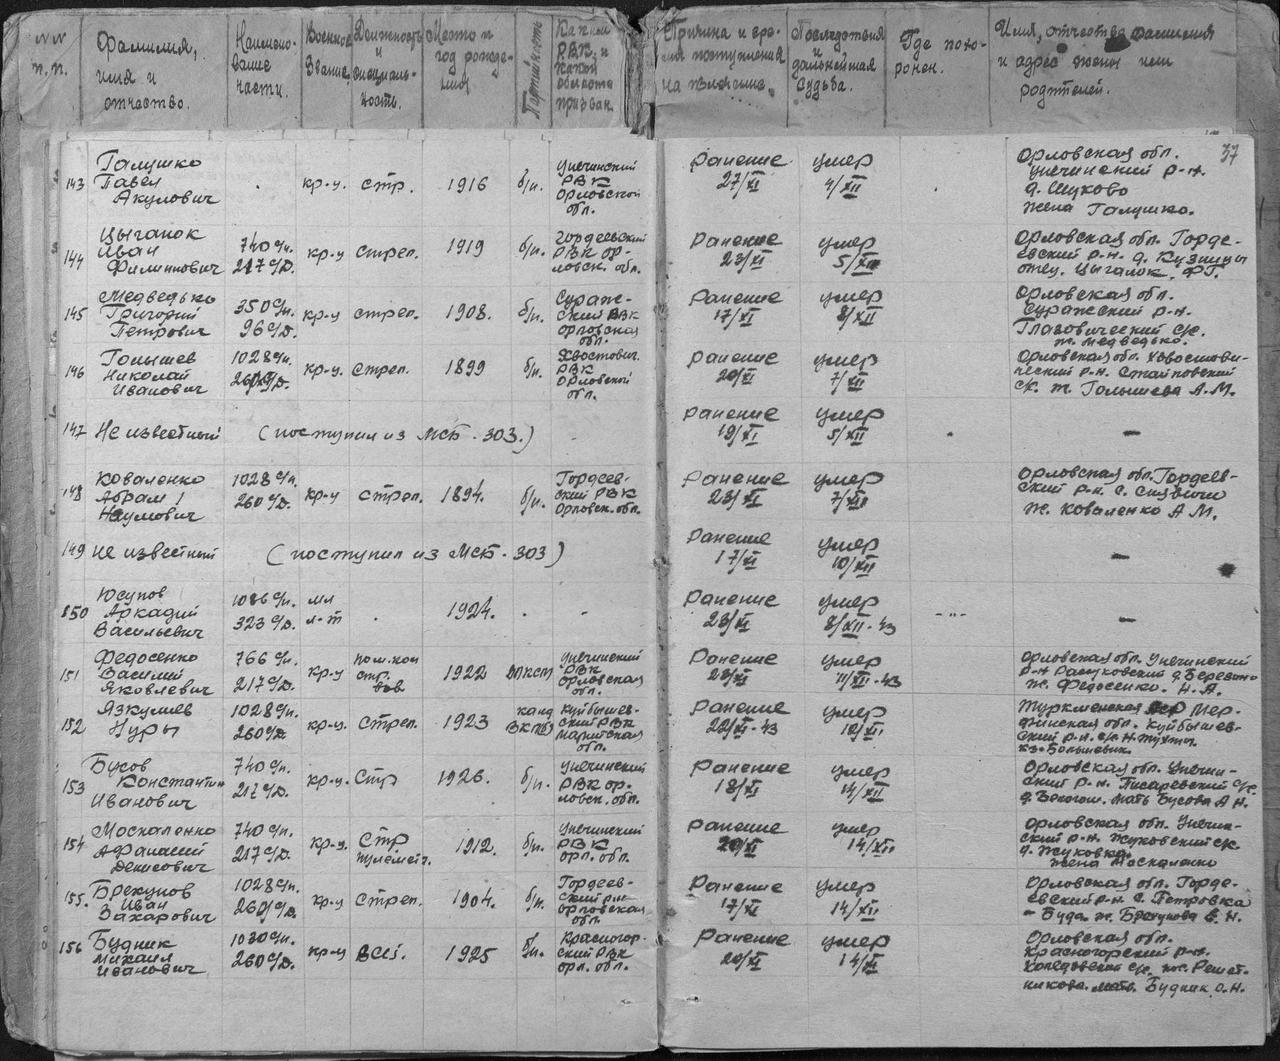 NN п.п.
Фамилия, имя и отчество.
Наимено-вание части.
Военное звание
Должность и специаль-ность.
Место и год рожде-ния
Партийность
Каким РВК, и какой области призван.
Причина и вре-мя поступления на лечение.
Последствия и дальнейшая судьба.
Где похо-ронен.
Имя, отчество, фамилия и адрес жены или родителей.
37
143 Галушко Павел Акулович
кр-ц. стр. 1916 б/п.
Унечинский РВК Орловской обл.
Ранение 27/XI умер 4/XII
Орловская обл.
Унечинский р-н.
д. Шуково
жена Галушко.
144 Цыганок Иван Филиппович
740 с/п. 217 с/д. кр-ц стрел. 1919 б/п.
Гордеевский РВК Ор-ловск. обл.
Ранение 23/XI умер 5/XII
Орловская обл. Горде-
евский р-н. д. Кузницы
отец. Цыганок. Ф.Г.
145 Медведько Григорий Петрович
350 с/п. 96 с/д. кр-ц стрел. 1908. б/п.
Сураж-ский РВК Орловская обл.
Ранение 17/XI умер 8/XII
Орловская обл.
Суражский р-н.
Глазовический с/с.
ж. Медведько.
146 Голышев Николай Иванович
1028 с/п. 260 с/д. кр-ц. стрел. 1899 б/п.
Хвостович. РВК Орловской обл.
Ранение 20/XI умер 7/XII
Орловская обл. Хвостови-
ческий р-н.
с/с. ж. Голышева А.М.
147 Не известный (поступил из МСБ - 303.)
Ранение 19/XI умер 5/XII —
148 Коваленко Абрам Наумович
1028 с/п. 260 с/д. кр-ц стрел. 1894. б/п.
Гордеев-ский РВК Орловск. обл.
Ранение 23/XI умер 7/XII
Орловская обл. Гордеев-
ский р-н. с.
ж. Коваленко А.М.
149 не известный (поступил из МСБ - 303)
Ранение 17/XI умер 10/XII —
150 Юсупов Аркадий Васильевич
323 с/д. мл л-т 1924.
Ранение 23/XI умер 8/XII - 43 - " - —
151 Федосенко Василий Яковлевич
766 с/п. 217 с/д. кр-ц пом. ком стр. 1922 ВЛКСМ
Унечинский РВК Орловская обл.
Ранение 28/XI умер 11/XII - 43
Орловская обл. Унечинский
р-н Рассуховский д. Березина
ж. Федосенко. Н.А.
152 Язкулиев Нуры
1028 с/п. 260 с/д. кр-ц. стрел. 1923 канд ВКП(б)
Куйбышев-ский РВК Марыйская обл.
Ранение 22/XI - 43 умер 12/XII
Туркменская ССР Мар-
ыйская обл. Куйбышев-
ский р-н. с/с
кз. Большевик.
153 Бусов Константин Иванович
740 с/п. 217 с/д. кр-ц. стр 1926. б/п.
Унечинский РВК Ор-ловск. обл.
Ранение 18/XI умер 14/XII
Орловская обл. Унечин-
ский р-н. Писаревский с/с.
д. мать Бусова А.Н.
154 Москаленко Афанасий Денисович
740 с/п. 217 с/д. кр-ц. стр пулемётч. 1912. б/п.
Унечинский РВК Орл. обл.
Ранение 20/XI умер 14/XII
Орловская обл. Унечин-
ский р-н. Жуковский с/с
д. Жуковка.
жена Москаленко
155. Брекунов Иван Захарович
1028 с/п. 260 с/д. кр-ц стрел. 1904. б/п.
Гордеев-ский р-н Орловская обл.
Ранение 17/XI умер 14/XII
Орловская обл. Горде-
евский р-н с. Петровка
- Буда. ж. Брекунова Е.Н.
156 Будник Михаил Иванович
1030 с/п. 260 с/д. кр-ц 1925 б/п.
Красногор-ский РВК Орл. обл.
Ранение 20/XI умер 14/XII
Орловская обл.
Красногорский р-н.
с/с. пос. Решет-
никова. мать. Будник О.Н.